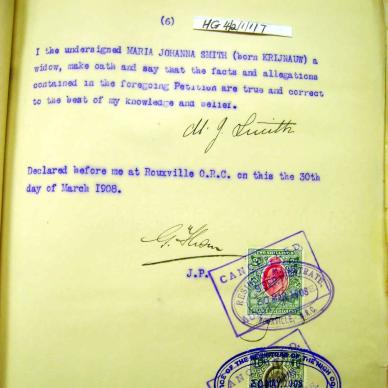 (6)
HG 4/2/1/1/7
I the undersigned MARIA JOHANNA SMITH (born KRIJNAUW) a
widow, make oath and say that the facts and allegations
contained in the foregoing Petition are true and correct
to the best of my knowledge and belief.
M. J. Smith
Declared before me at Rouxville O.R.C. on this the 30th
day of March 1908.
J.P.
CANCELLED
1908
ROUXVILLE, O.R.C.
OFFICE OF THE REGISTRAR OF THE HIGH CO